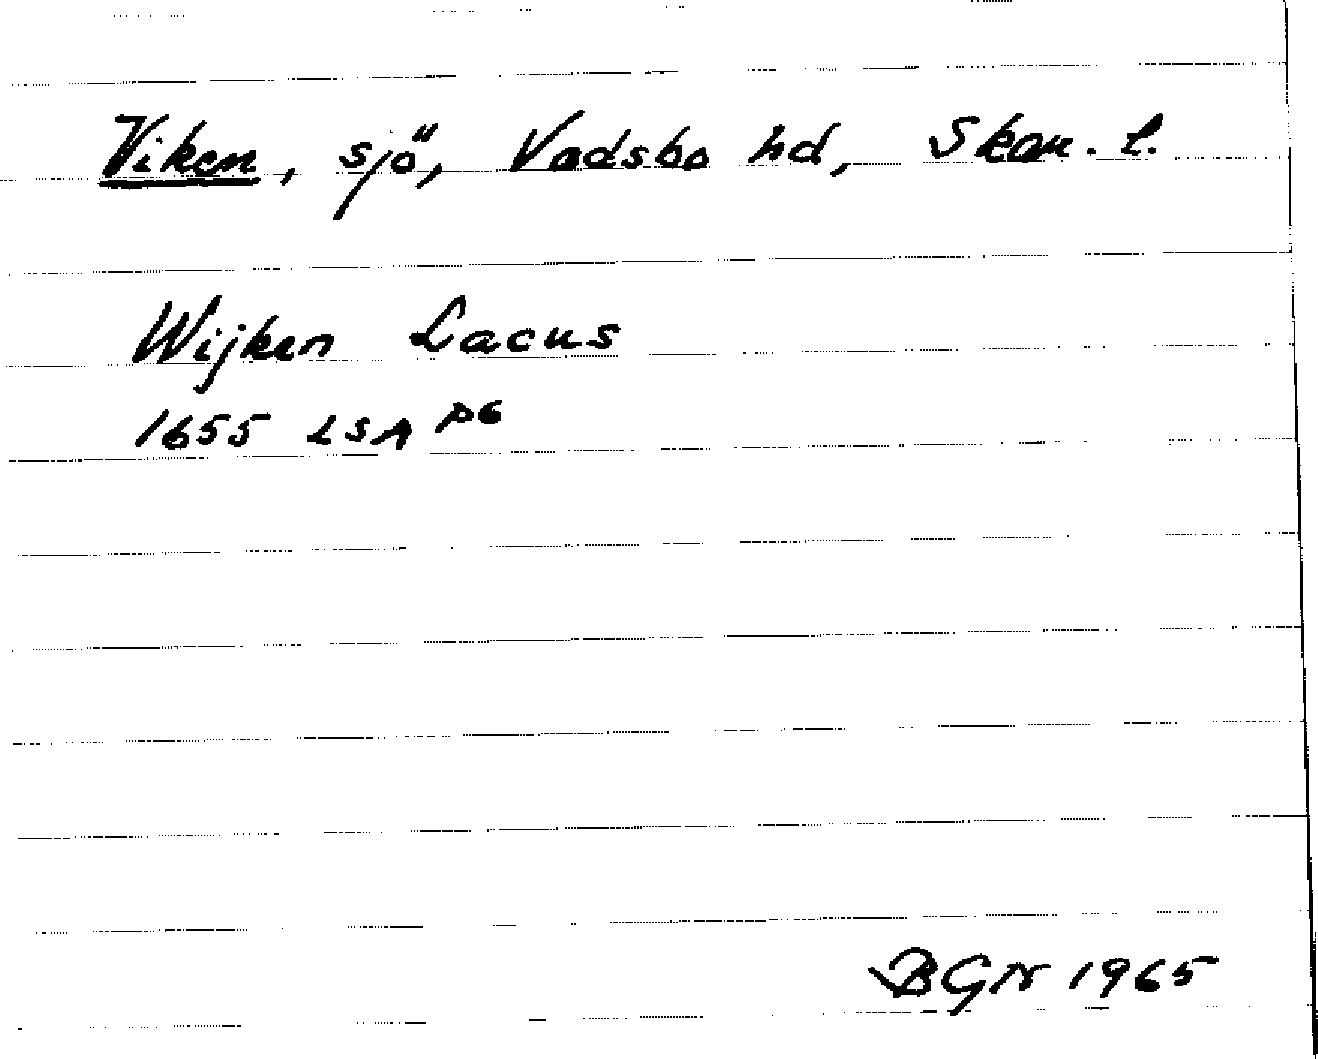 Viken, sjö, Vadsbo hd, Skar. l.
Wijken Lacus
1655 LSA P6
BGN 1965